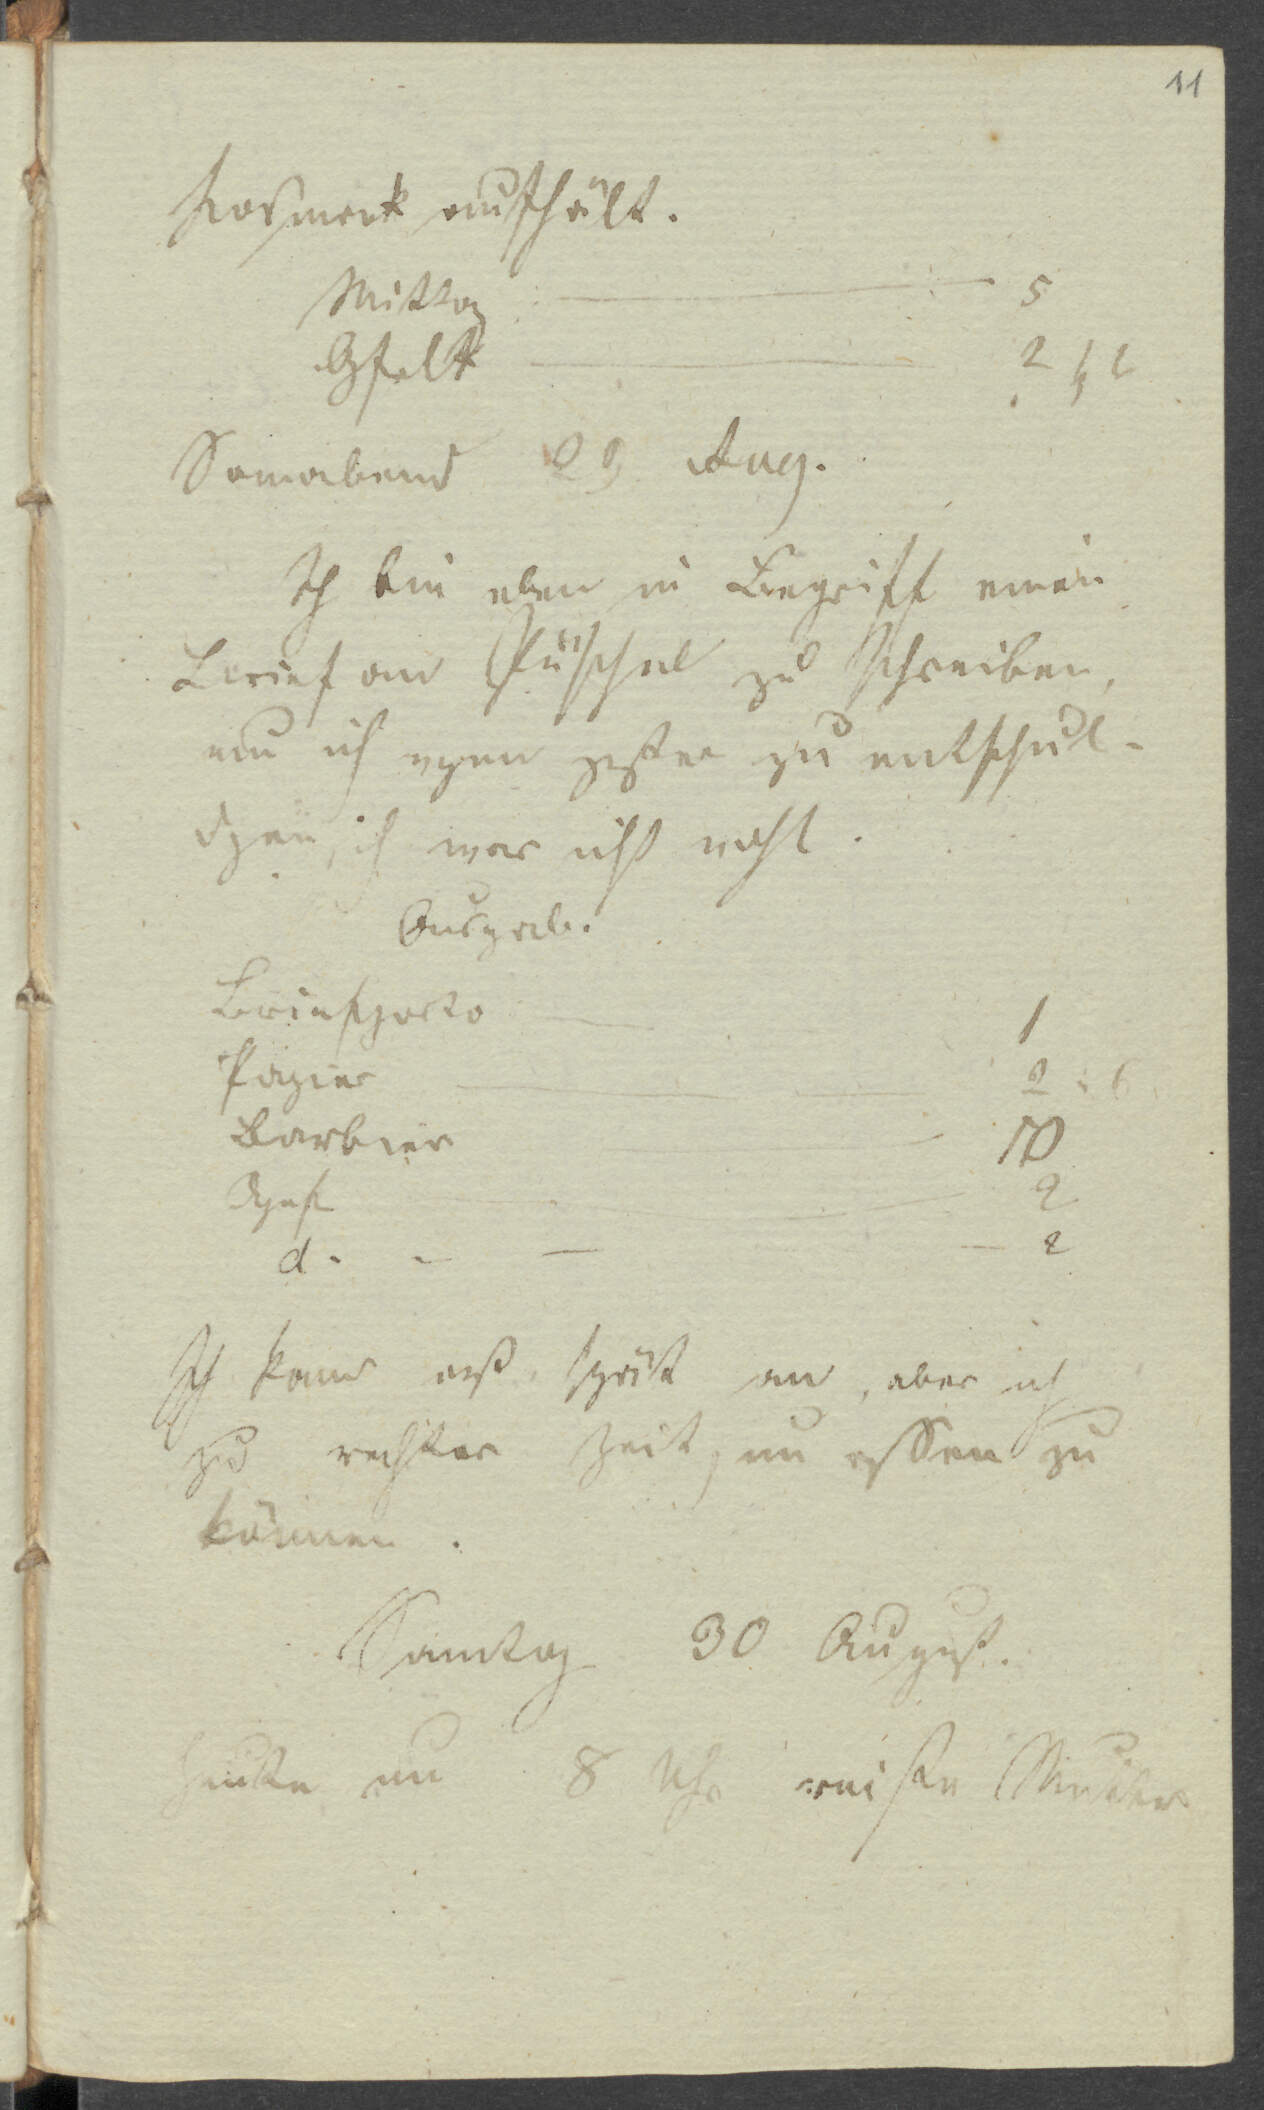 11
aufhält.
Mittag — 5
2
Sonnabend 29 Aug.
Ich bin eben in Begriff einen
Brief an Püschel zu schreiben,
um ich wegen gester zu entschul-
dgen, ich war nicht wohl.
Ausgab.
Briefporto — 1
Papier — 2 : 6
Barbier — 10
2
d. - — 2
Ich kam erst spät an, aber ich
zu rechter Zeit, um essen zu
können.
Sonntag 30 August.
Heute um 8 Uhr reiste